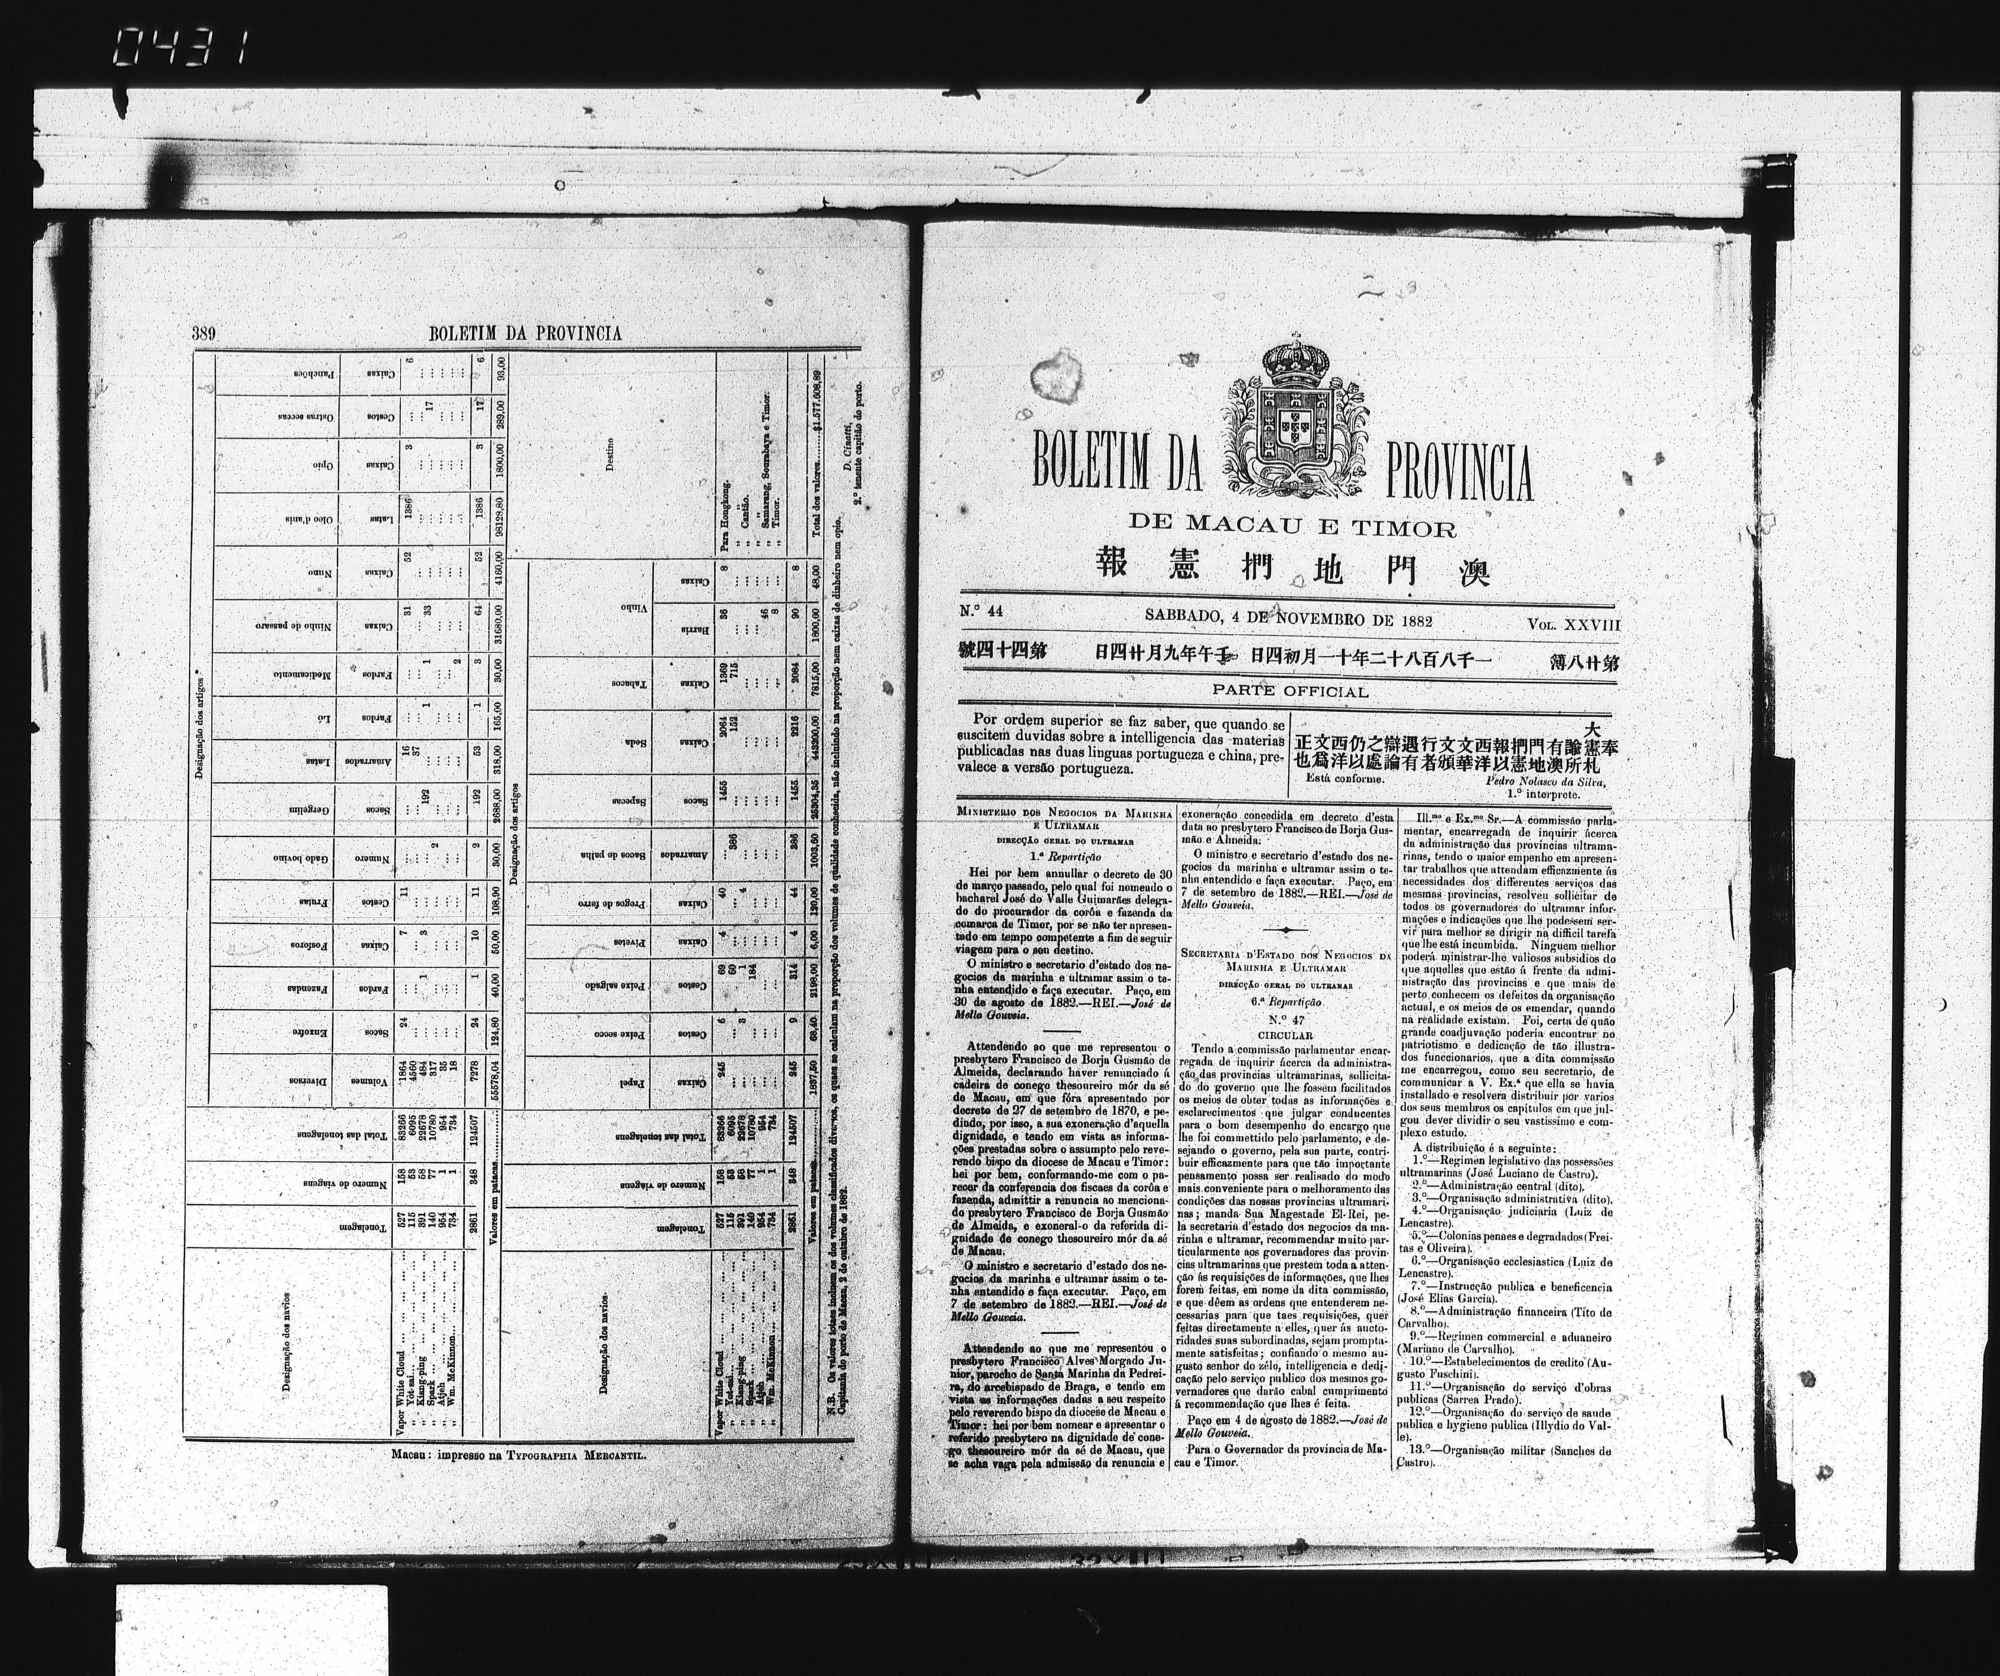 0431
389
BOLETIM DA PROVINCIA
Designação dos artigos
Designação dos navios
Tonelagem
Numero de viagens
Total das tonelagens
Diversos
Enxofre
Fazendas
Fosforos
Frutas
Gado bovino
Gergelim
Latas
Lã
Medicamento
Ninho de passaro
Nuno
Oleo d'anis
Opio
Ostras seccas
Panchões
Volumes
Saccos
Fardos
Caixas
Cestos
Numero
Saccos
Amarrados
Fardos
Fardos
Caixas
Caixas
Latas
Caixas
Cestos
Caixas
Vapor White Cloud 527 158 83266 1864 24 7 11 16 31 52 1386 3 6
„ Yót-sai 115 53 6095 4560 37
„ Kiang-ping 391 58 22678 484 1 3 192 1 1 33 17
„ Spark 140 77 10780 317 2
„ Atjeh 954 1 954 35
„ Wm. McKinnon 734 1 734 18 2
2861 348 124507 7278 24 1 10 11 2 192 53 1 3 64 52 1386 3 17 6
Valores em patacas 55578,04 124,80 40,00 50,00 108,90 30,00 2688,00 318,00 165,00 30,00 31680,00 4160,00 98128,80 1800,00 289,00 93,00
Designação dos artigos
Designação dos navios
Tonelagem
Numero de viagens
Total das tonelagens
Papel
Peixe secco
Peixe salgado
Pivetes
Pregos de ferro
Sacos de palha
Sapecas
Seda
Tabacos
Vinho
Destino
Caixas
Cestos
Cestos
Caixas
Caixas
Amarrados
Sacos
Caixas
Caixas
Barris
Caixas
Vapor White Cloud 527 158 83266 245 6 69 4 40 1455 2064 1369 36 8 Para Hongkong.
„ Yót-sai 115 53 6095 60 386 152 715 „ „
„ Kiang-ping 391 58 22678 3 1 4 „ Cantão.
„ Spark 140 77 10780 184 „ „
„ Atjeh 954 1 954 46 „ Samarang, Sourabaya e Timor.
„ Wm. McKinnon 734 1 734 8 „ Timor.
2861 348 124507 245 9 314 4 44 386 1455 2216 2084 90 8
Valores em patacas 1837,50 68,40 2198,00 6,00 120,00 1003,60 25304,35 443200,00 7815,00 1800,00 48,00 Total dos valores $1.577.608,89
N.B. Os valores totaes incluem os dos volumes classificados diversos, os quaes se calculam na proporção dos volumes de qualidade conhecida, não incluindo na proporção nem caixas de dinheiro nem opio.
Capitania do porto de Macau, 2 de outubro de 1882.
D. Cinatti,
2.º tenente capitão do porto.
Macau: impresso na TYPOGRAPHIA MERCANTIL.
BOLETIM DA PROVINCIA
DE MACAU E TIMOR
報憲捫地門澳
N.º 44
SABBADO, 4 DE NOVEMBRO DE 1882
VOL. XXVIII
號四十四第
日四廿月九年午壬 日四初月一十年二十八百八千一
簿八廿第
PARTE OFFICIAL
Por ordem superior se faz saber, que quando se
suscitem duvidas sobre a intelligencia das materias
publicadas nas duas linguas portugueza e china, pre-
valece a versão portugueza.
大
正文西仍之辯遇行文文西報捫門有諭憲奉
也爲洋以處論有者頒華洋以憲地澳所札
Está conforme.
Pedro Nolasco da Silva,
1.º interprete.
MINISTERIO DOS NEGOCIOS DA MARINHA
E ULTRAMAR
DIRECÇÃO GERAL DO ULTRAMAR
1.ª Repartição
Hei por bem annullar o decreto de 30
de março passado, pelo qual foi nomeado o
bacharel José do Valle Guimarães delega-
do do procurador da corôa e fazenda da
comarca de Timor, por se não ter apresen-
tado em tempo competente a fim de seguir
viagem para o seu destino.
O ministro e secretario d'estado dos ne-
gocios da marinha e ultramar assim o te-
nha entendido e faça executar. Paço, em
30 de agosto de 1882.—REI.—José de
Mello Gouveia.
Attendendo ao que me representou o
presbytero Francisco de Borja Gusmão de
Almeida, declarando haver renunciado á
cadeira de conego thesoureiro mór da sé
de Macau, em que fôra apresentado por
decreto de 27 de setembro de 1870, e pe-
dindo, por isso, a sua exoneração d'aquella
dignidade, e tendo em vista as informa-
ções prestadas sobre o assumpto pelo reve-
rendo bispo da diocese de Macau e Timor:
hei por bem, conformando-me com o pa-
recer da conferencia dos fiscaes da corôa e
fazenda, admittir a renuncia ao menciona-
do presbytero Francisco de Borja Gusmão
de Almeida, e exoneral-o da referida di-
gnidade de conego thesoureiro mór da sé
de Macau.
O ministro e secretario d'estado dos ne-
gocios da marinha e ultramar assim o te-
nha entendido e faça executar. Paço, em
7 de setembro de 1882.—REI.—José de
Mello Gouveia.
Attendendo ao que me representou o
presbytero Francisco Alves Morgado Ju-
nior, parocho de Santa Marinha da Pedrei-
ra, do arcebispado de Braga, e tendo em
vista as informações dadas a seu respeito
pelo reverendo bispo da diocese de Macau e
Timor: hei por bem nomear e apresentar o
referido presbytero na dignidade de cone-
go thesoureiro mór da sé de Macau, que
se acha vaga pela admissão da renuncia e
exoneração concedida em decreto d'esta
data ao presbytero Francisco de Borja Gus-
mão e Almeida.
O ministro e secretario d'estado dos ne-
gocios da marinha e ultramar assim o te-
nha entendido e faça executar. Paço, em
7 de setembro de 1882.—REI.—José de
Mello Gouveia.
SECRETARIA D'ESTADO DOS NEGOCIOS DA
MARINHA E ULTRAMAR
DIRECÇÃO GERAL DO ULTRAMAR
6.ª Repartição
N.º 47
CIRCULAR
Tendo a commissão parlamentar encar-
regada de inquirir ácerca da administra-
ção das provincias ultramarinas, sollicita-
do do governo que lhe fossem facilitados
os meios de obter todas as informações e
esclarecimentos que julgar conducentes
para o bom desempenho do encargo que
lhe foi committido pelo parlamento, e de-
sejando o governo, pela sua parte, contri-
buir efficazmente para que tão importante
pensamento possa ser realisado do modo
mais conveniente para o melhoramento das
condições das nossas provincias ultramari-
nas; manda Sua Magestade El-Rei, pe-
la secretaria d'estado dos negocios da ma-
rinha e ultramar, recommendar muito par-
ticularmente aos governadores das provin-
cias ultramarinas que prestem toda a atten-
ção ás requisições de informações, que lhes
forem feitas, em nome da dita commissão,
e que dêem as ordens que entenderem ne-
cessarias para que taes requisições, quer
feitas directamente a elles, quer ás aucto-
ridades suas subordinadas, sejam prompta-
mente satisfeitas; confiando o mesmo au-
gusto senhor do zêlo, intelligencia e dedi-
cação pelo serviço publico dos mesmos go-
vernadores que darão cabal cumprimento
á recommendação que lhes é feita.
Paço em 4 de agosto de 1882.—José de
Mello Gouveia.
Para o Governador da provincia de Ma-
cau e Timor.
Ill.mo e Ex.mo Sr.—A commissão parla-
mentar, encarregada de inquirir ácerca
da administração das provincias ultrama-
rinas, tendo o maior empenho em apresen-
tar trabalhos que attendam efficazmente ás
necessidades dos differentes serviços das
mesmas provincias, resolveu sollicitar de
todos os governadores do ultramar infor-
mações e indicações que lhe podessem ser-
vir para melhor se dirigir na difficil tarefa
que lhe está incumbida. Ninguem melhor
poderá ministrar-lhe valiosos subsidios do
que aquelles que estão á frente da admi-
nistração das provincias e que mais de
perto conhecem os defeitos da organisação
actual, e os meios de os emendar, quando
na realidade existam. Foi, certa de quão
grande coadjuvação poderia encontrar no
patriotismo e dedicação de tão illustra-
dos funccionarios, que a dita commissão
me encarregou, como seu secretario, de
communicar a V. Ex.ª que ella se havia
installado e resolvera distribuir por varios
dos seus membros os capitulos em que jul-
gou dever dividir o seu vastissimo e com-
plexo estudo.
A distribuição é a seguinte:
1.º—Regimen legislativo das possessões
ultramarinas (José Luciano de Castro).
2.º—Administração central (dito).
3.º—Organisação administrativa (dito).
4.º—Organisação judiciaria (Luiz de
Lencastre).
5.º—Colonias penaes e degradados (Frei-
tas e Oliveira).
6.º—Organisação ecclesiastica (Luiz de
Lencastre).
7.º—Instrucção publica e beneficencia
(José Elias Garcia).
8.º—Administração financeira (Tito de
Carvalho).
9.º—Regimen commercial e aduaneiro
(Mariano de Carvalho).
10.º—Estabelecimentos de credito (Au-
gusto Fuschini).
11.º—Organisação do serviço d'obras
publicas (Sarrea Prado).
12.º—Organisação do serviço de saude
publica e hygiene publica (Illydio do Val-
le).
13.º—Organisação militar (Sanches de
Castro).